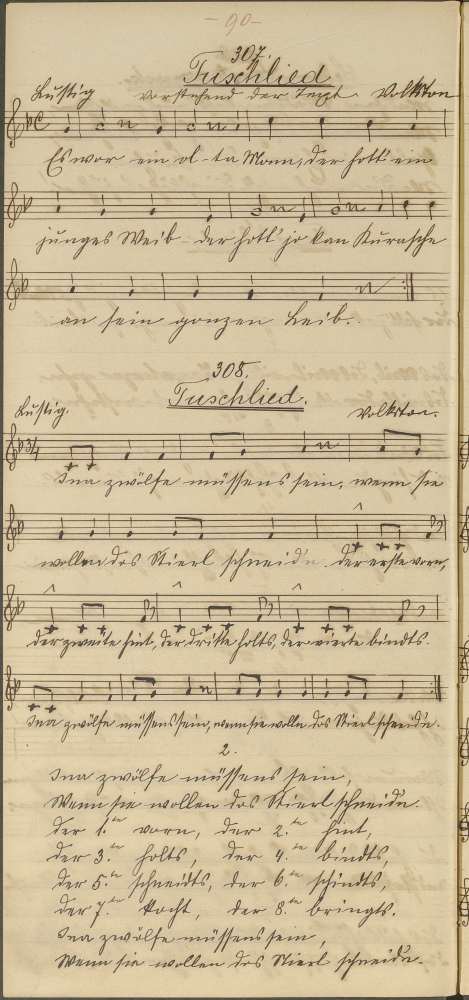 - 90 -
307.
Tuschlied
Lustig vorstehend der Text. Volkston
Es war ein ol-ta Mann, der hott' ein
junges Weib der hott' jo kan Kurasche
an sein ganzen Leib.
308.
Tuschlied.
Lustig. Volkston.
3/4
Ina zwölfe müssens sein, wenn sie
wollen das Stierl schneid'n. der erste vorn,
der zweite hint, der dritte holts, der vierte bindts.
Ina zwölfe müssens sein, wenn sie wolln das Stierl schneid'n.
2.
Ina zwölfe müssens sein,
Wenn sie wollen das Stierl schneidn.
Der 1.te vorn, der 2.te hint,
der 3.te holts, der 4.te bindts,
der 5.te schneidts, der 6.te schindts,
der 7.te kocht, der 8.te bringts.
Ina zwölfe müssens sein,
Wenn sie wollen das Stierl schneidn.